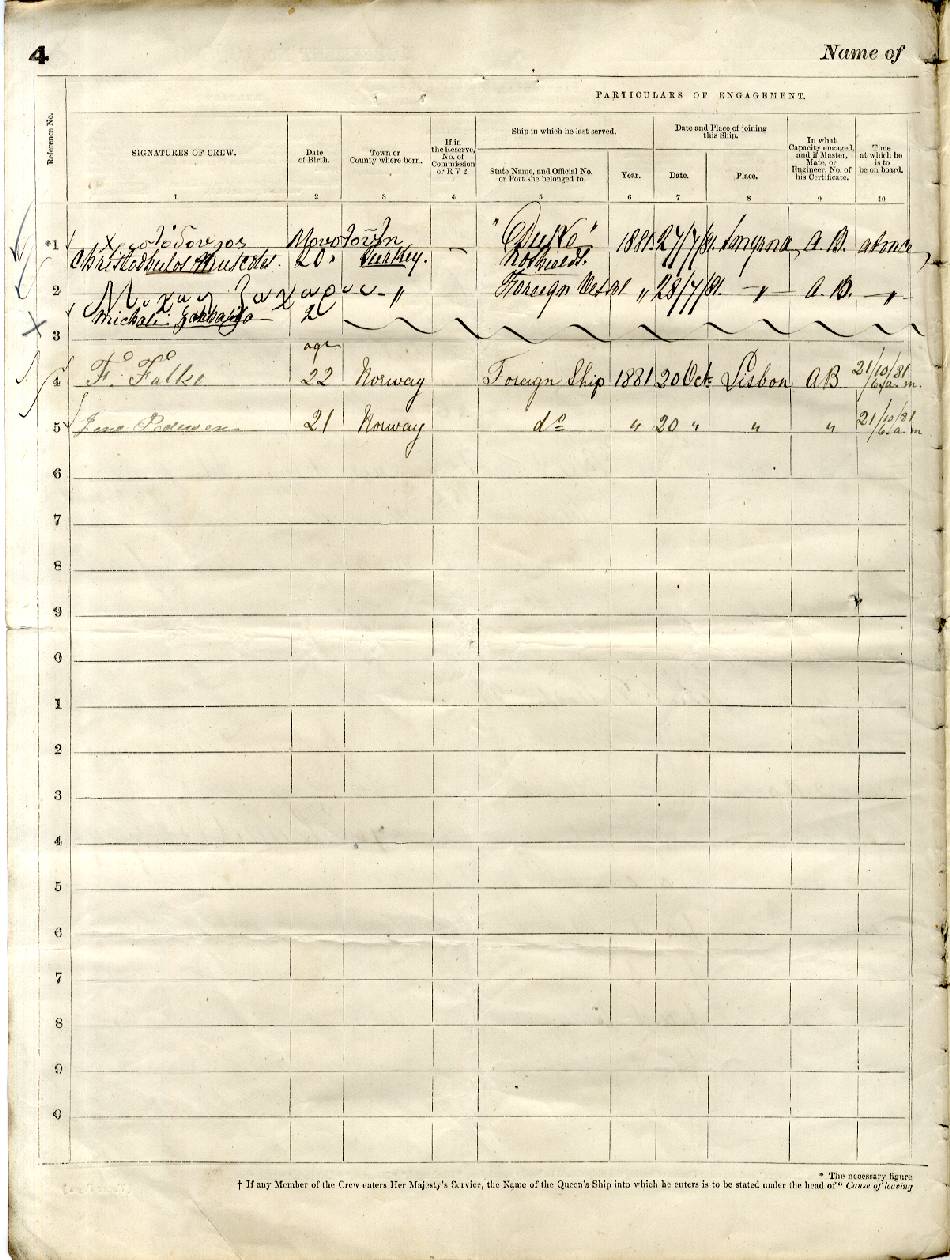 4
Name of
PARTICULARS OF ENGAGEMENT.
Reference No.
SIGNATURES OF CREW.
Date of Birth.
Town or County where born.
If in the Reserve, No. of Commission or R V 2
Ship in which he last served.
State Name, and Official No. or Port she belonged to.
Year.
Date and Place of joining this Ship.
Date.
Place.
In what Capacity engaged, and if Master, Mate, or Engineer, No. of his Certificate.
Time at which he is to be on board.
1 2 3 4 5 6 7 8 9 10
*1 1881 27/7/81 Smyrna A.B. at once
20 Turkey.
2 Foreign " 28/7/81 " A.B. "
Michali
3
age
4 F. Falke 22 Norway Foreign Ship 1881 20 Oct Lisbon AB 21/10/81 6 a.m.
5 21 Norway do " 20 " " " 21/10/81 6 a.m
6
7
8
9
0
1
2
3
4
5
6
7
8
9
0
* The necessary figure
† If any Member of the Crew enters Her Majesty's Service, the Name of the Queen's Ship into which he enters is to be stated under the head of "Cause of leaving